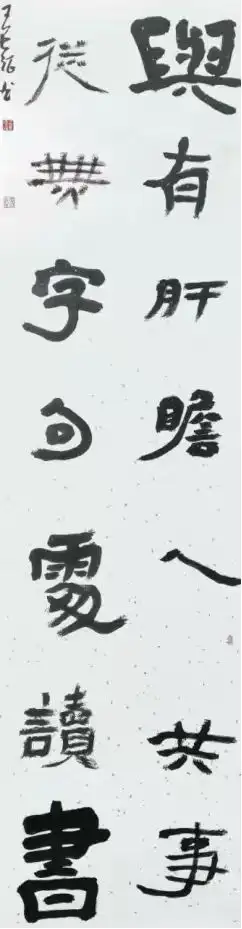 與有肝瞻人共事
從無字句處讀書